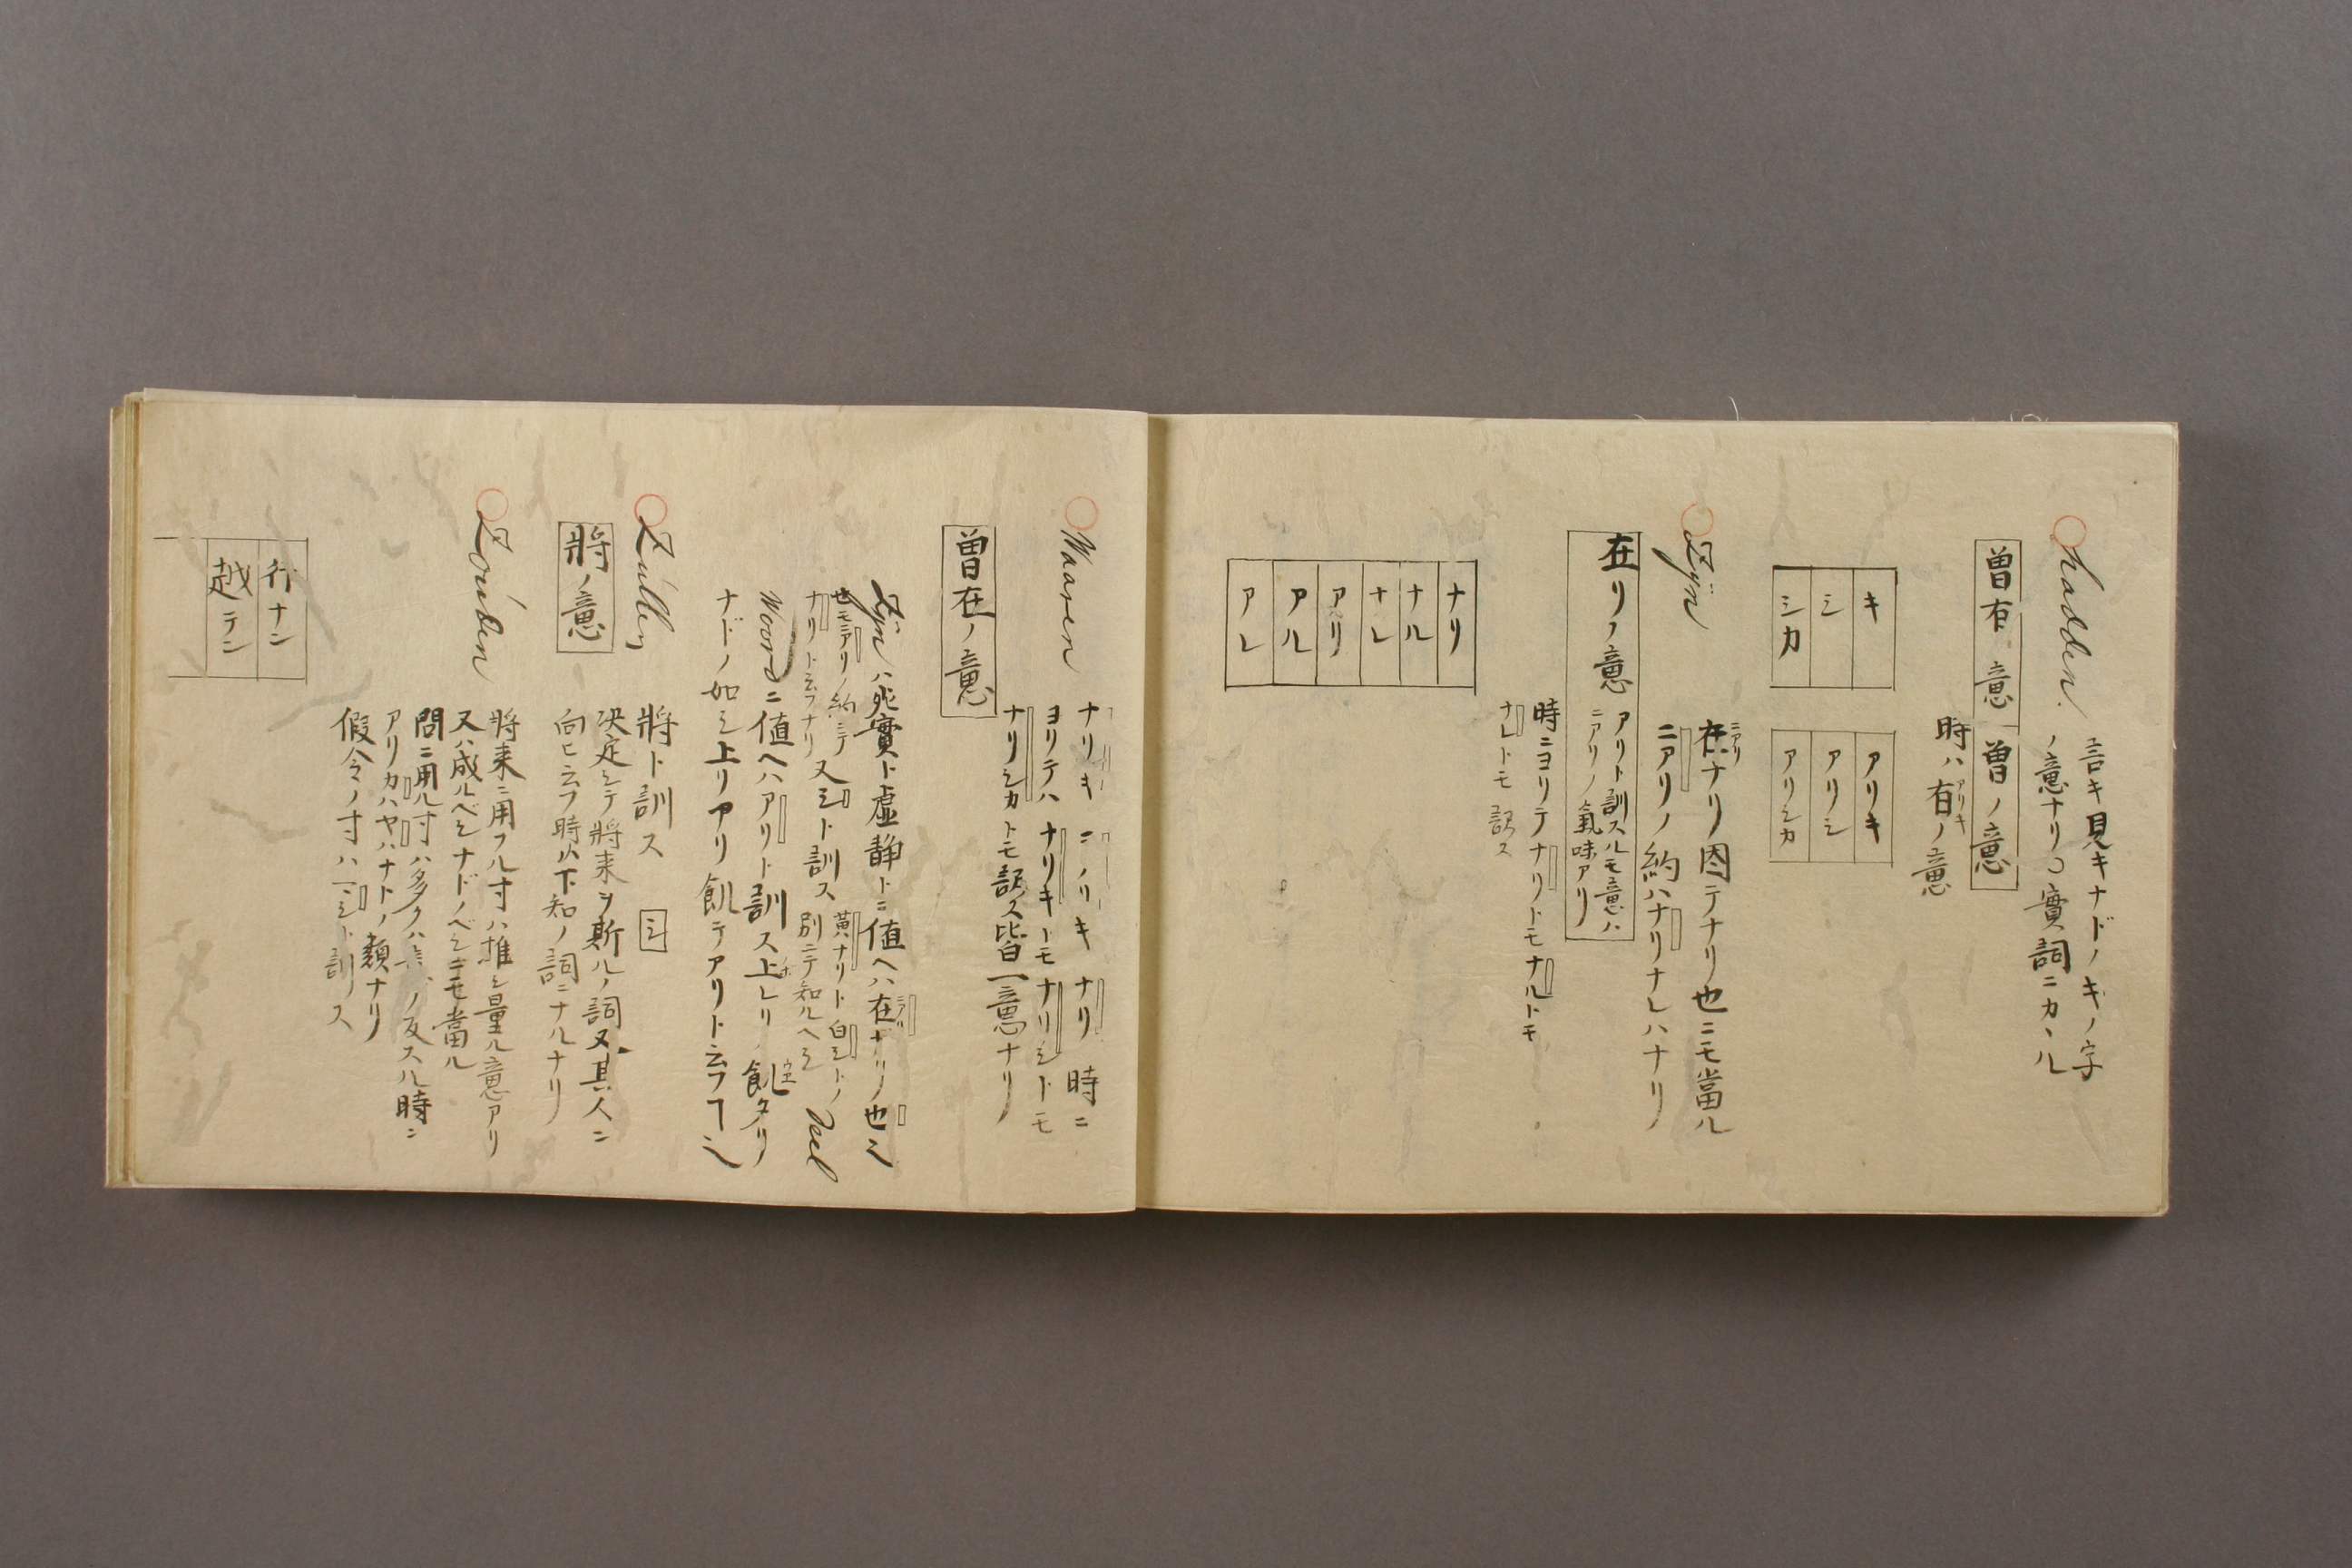 hadden.
言キ見キナドノキノ字
ノ意ナリ〇實詞ニカヽル
曽有 意
曽ノ意
時ハ有ノ意
アリキ
キ
シ
シカ
アリキ
アリシ
アリシカ
Zÿn
ニアリ
在ナリ因テナリ也ニモ當ル
ニアリノ約ハナリナレハナリ
在リノ意
アリト訓スルモ意ハ
ニアリノ氣味アリ
時ニヨリテナリトモナルトモ
ナレトモ訳ス
ナリ
ナル
ナレ
アリ
アル
アレ
Waaren
ナリキ ニノリキ ナリ 時ニ
ヨリテハ ナリキトモ ナリシトモ
ナリシカトモ訳ス皆一意ナリ
曽在ノ意
Zÿn ハ死實ト虚静トニ値ヘハ在ナリノ也ミ
也モニアリノ約ニテ
ナリト云フナリ
又シト訓ス
黄ナリト白シトノ
別ニテ知ルヘシ
Weel
Woordニ値ヘハアリト訓ス上レリ 飢タリ
ナドノ如シ上リアリ飢テアリト云フヿミ
Zullen
將ト訓ス シ
决定シテ將来ヲ斯ルノ詞又其人ニ
向ヒ云フ時ハ下知ノ詞ニナルナリ
將ノ意
Zouden
將来ニ用フル寸ハ推シ量ル意アリ
又ハ成ルベシナドノベシニモ當ル
問ニ用ル寸ハ多クハ ノ反スル時ニ
アリカハヤハナトノ類ナリ
假令ノ寸ハ シト訓ス
行ナン
越テン